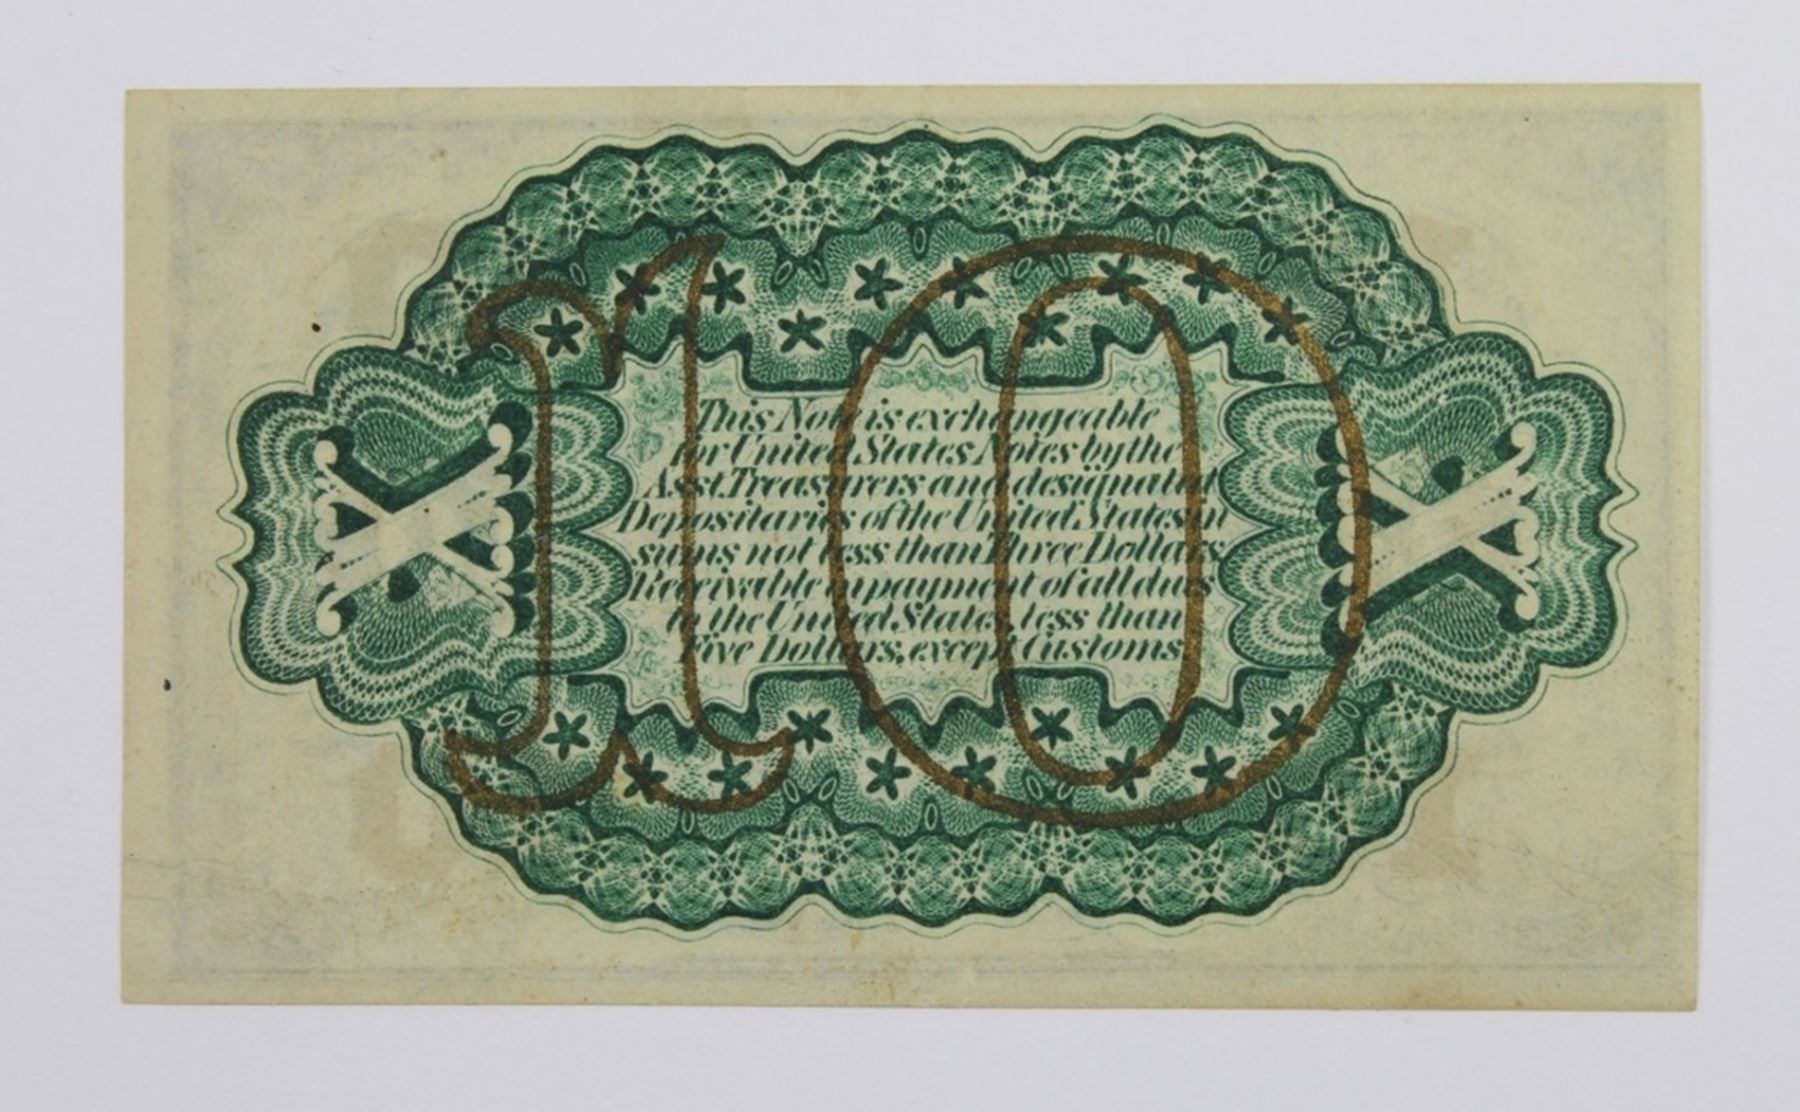 This Note is exchangeable
for United States Notes by the
Asst. Treasurers and designated
Depositaries of the United States in
sums not less than Three Dollars.
Receivable in payment of all dues
to the United States less than
Five Dollars, except Customs.
10
X X